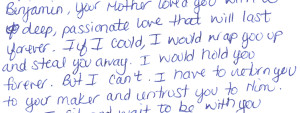 Benjamin, your Mother loved you with a
deep, passionate love that will last
forever. If I could, I would wrap you up
and steal you away. I would hold you
forever. But I can't. I have to return you
to your maker and entrust you to Him.
wait to be with you